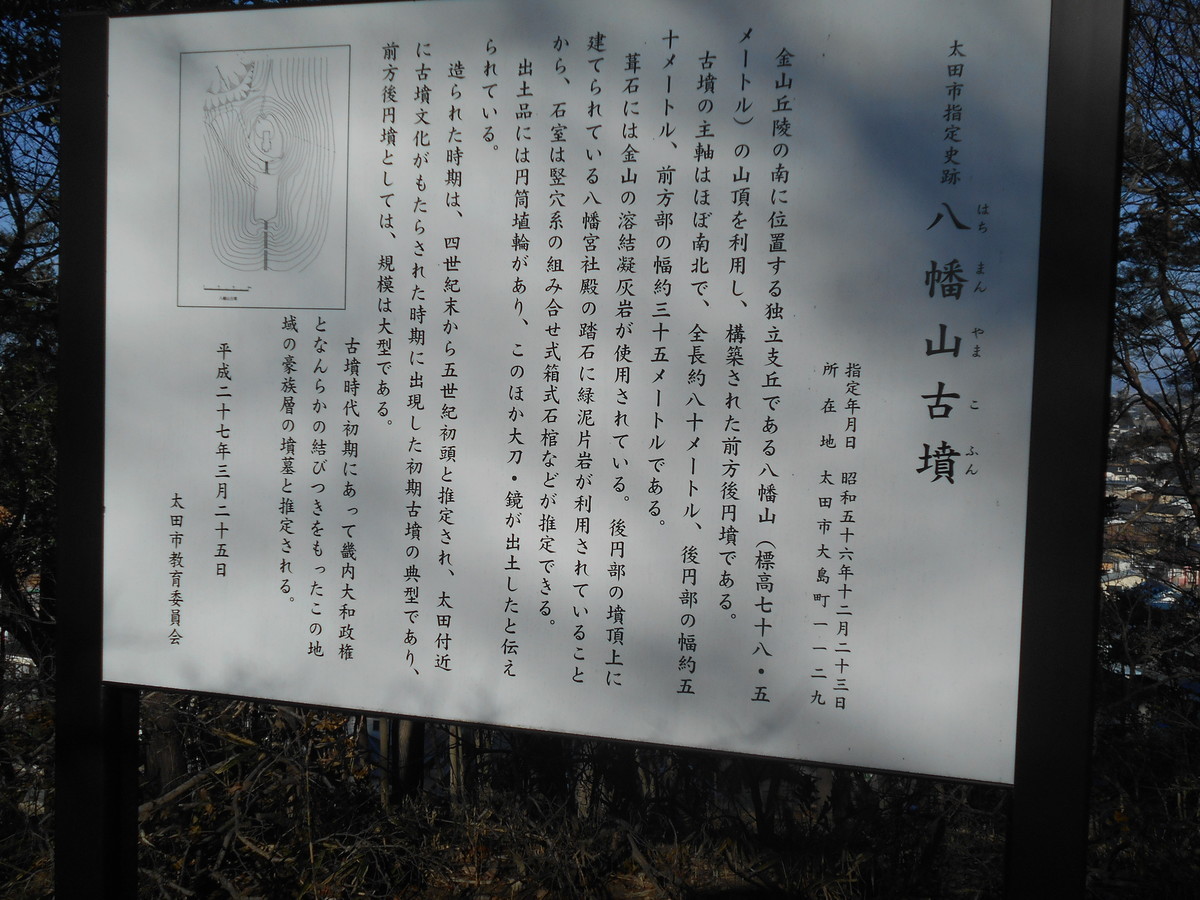 太田市指定史跡 八幡山古墳
はち まん やま こ ふん
指定年月日 昭和五十六年十二月二十三日
所在地 太田市大島町一一二九
金山丘陵の南に位置する独立支丘である八幡山（標高七十八・五
メートル）の山頂を利用し、構築された前方後円墳である。
古墳の主軸はほぼ南北で、全長約八十メートル、後円部の幅約五
十メートル、前方部の幅約三十五メートルである。
葺石には金山の溶結凝灰岩が使用されている。後円部の墳頂上に
建てられている八幡宮社殿の踏石に緑泥片岩が利用されていること
から、石室は竪穴系の組み合せ式箱式石棺などが推定できる。
出土品には円筒埴輪があり、このほか大刀・鏡が出土したと伝え
られている。
造られた時期は、四世紀末から五世紀初頭と推定され、太田付近
に古墳文化がもたらされた時期に出現した初期古墳の典型であり、
前方後円墳としては、規模は大型である。
古墳時代初期にあって畿内大和政権
となんらかの結びつきをもったこの地
域の豪族層の墳墓と推定される。
平成二十七年三月二十五日
太田市教育委員会